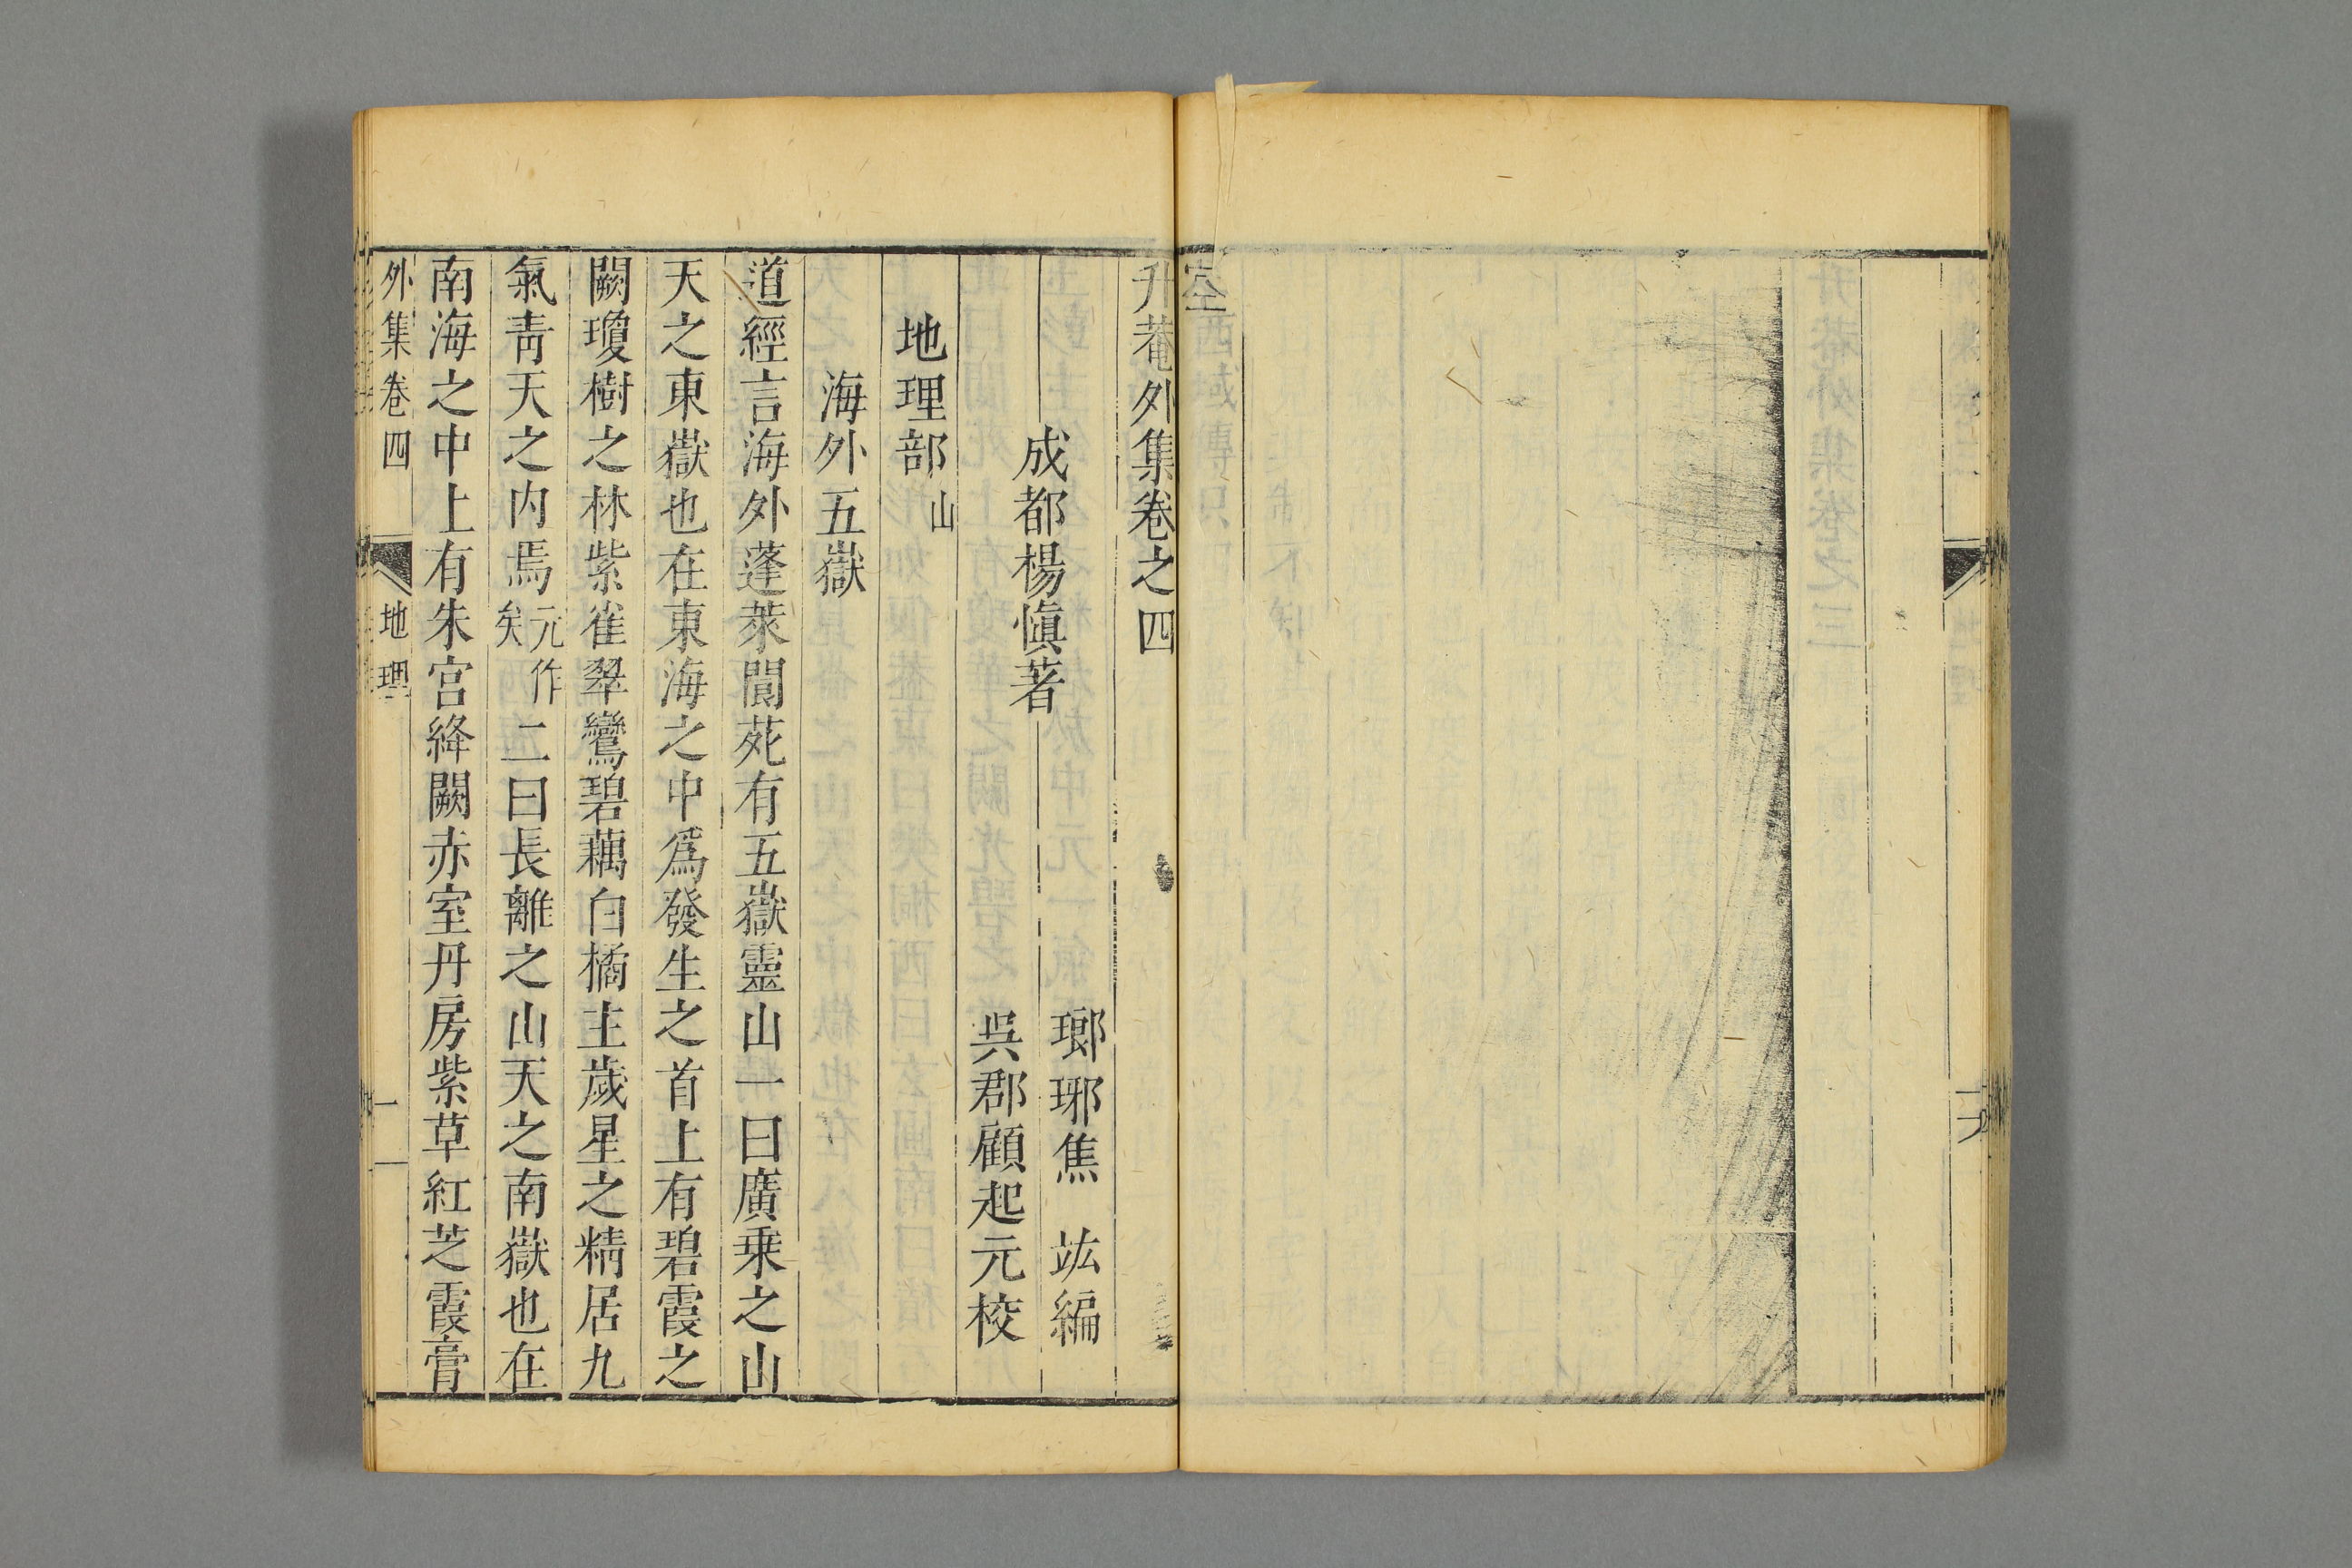 升菴外集卷之四
瑯琊焦 竑編
成都楊愼著
吳郡顧起元校
地理部山
海外五嶽
道經言海外蓬萊閬苑有五嶽靈山一曰廣乗之山
天之東嶽也在東海之中爲發生之首上有碧霞之
闕瓊樹之林紫雀翠鸞碧藕白橘主歲星之精居九
氣青天之内焉元作矣二曰長離之山天之南嶽也在
南海之中上有朱宮絳闕赤室丹房紫草紅芝霞膏
外集卷四 地理 一